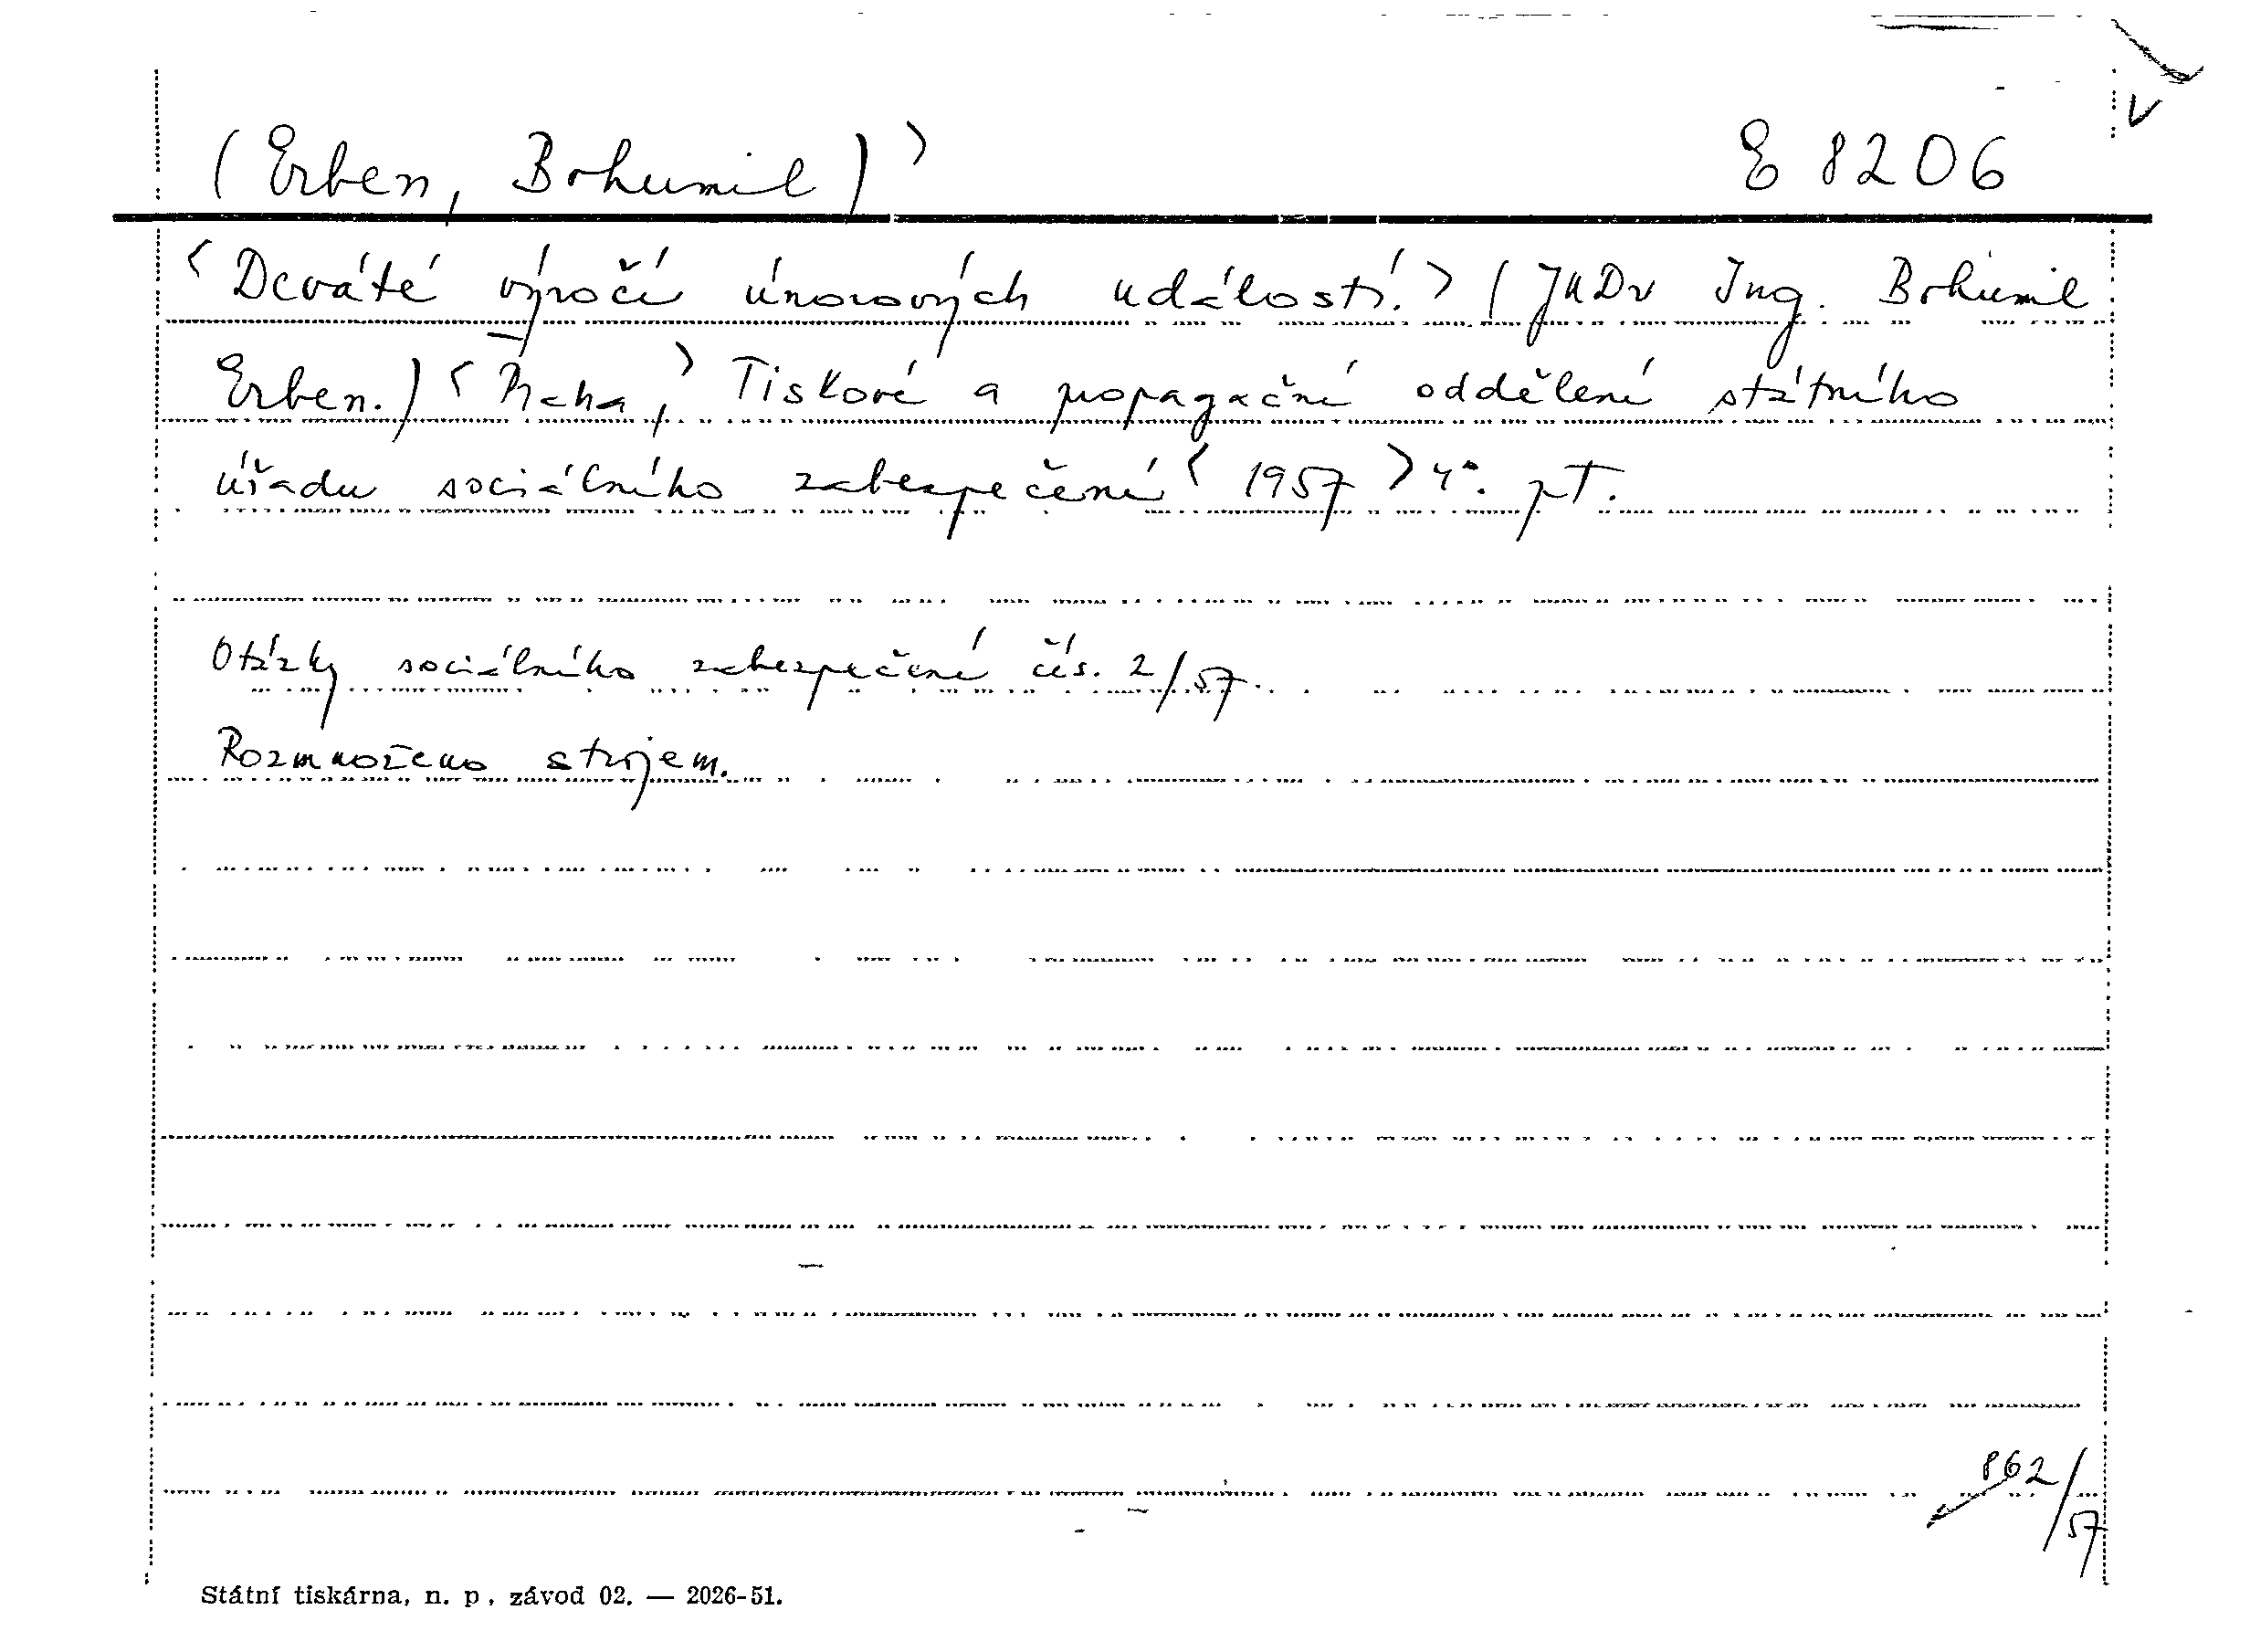 (Erben, Bohumil)> E 8206
V
<Deváté výročí únorových událostí.> (JUDr Ing. Bohumil
Erben.) <Praha,> Tiskové a propagační oddělení státního
úřadu sociálního zabezpečení <1957> 4°. pT.
Otázky sociálního zabezpečení čís. 2/57.
Rozmnoženo strojem.
862/57
Státní tiskárna, n. p., závod 02. — 2026-51.